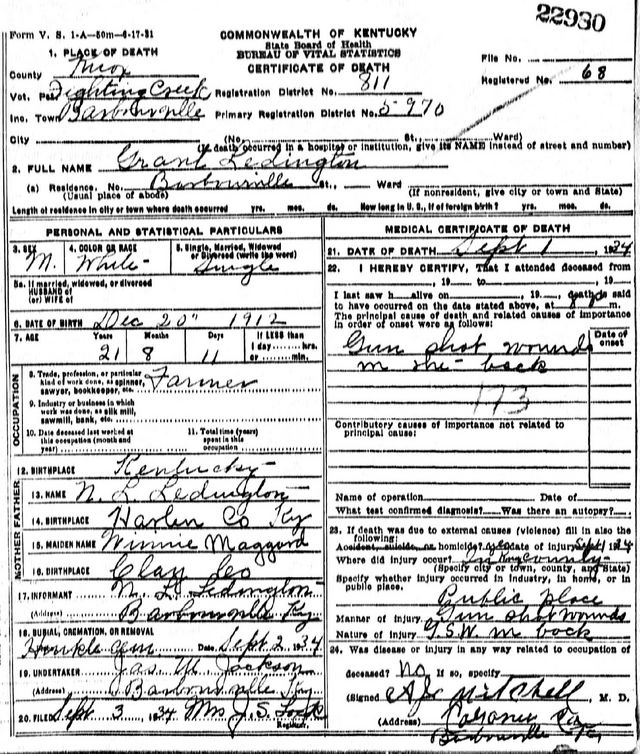 22930
Form V. S. 1-A—50m—6-17-31
COMMONWEALTH OF KENTUCKY
State Board of Health
BUREAU OF VITAL STATISTICS
CERTIFICATE OF DEATH
File No.
Registered No. 68
1. PLACE OF DEATH
County Knox
Vot. Pct. Fighting Creek Registration District No. 811
Inc. Town Barbourville Primary Registration District No. 5970
City (No. St., Ward)
(If death occurred in a hospital or institution, give its NAME instead of street and number)
2. FULL NAME Grant Ledington
(a) Residence. No. Barbourville St., Ward
(Usual place of abode) (If nonresident, give city or town and State)
Length of residence in city or town where death occurred yrs. mos. ds. How long in U. S., if of foreign birth? yrs. mos. ds.
PERSONAL AND STATISTICAL PARTICULARS
3. SEX M. 4. COLOR OR RACE White 5. Single, Married, Widowed or Divorced (write the word) Single
5a. If married, widowed, or divorced
HUSBAND of
(or) WIFE of
6. DATE OF BIRTH Dec 20" 1912
7. AGE Years 21 Months 8 Days 11 If LESS than 1 day......hrs. or......min.
OCCUPATION
8. Trade, profession, or particular kind of work done, as spinner, sawyer, bookkeeper, etc. Farmer
9. Industry or business in which work was done, as silk mill, sawmill, bank, etc.
10. Date deceased last worked at this occupation (month and year)
11. Total time (years) spent in this occupation
12. BIRTHPLACE Kentucky
FATHER
13. NAME N. L. Ledington
14. BIRTHPLACE Harlan Co Ky
MOTHER
15. MAIDEN NAME Winnie Maggard
16. BIRTHPLACE Clay Co
17. INFORMANT N. L. Ledington
(Address) Barbourville Ky
18. BURIAL, CREMATION, OR REMOVAL
Hinkle Cem Date Sept 2 1934
19. UNDERTAKER Jas. M. Jackson
(Address) Barbourville Ky
20. FILED Sept 3 1934 Mrs J. S. Lock
Registrar.
MEDICAL CERTIFICATE OF DEATH
21. DATE OF DEATH Sept 1, 1934
22. I HEREBY CERTIFY, That I attended deceased from
, 19 to , 19
I last saw h alive on , 19 , death is said
to have occurred on the date stated above, at 8 P m.
The principal cause of death and related causes of importance in order of onset were as follows:
Date of onset
Gun shot wounds
in the back
173
Contributory causes of importance not related to principal cause:
Name of operation Date of
What test confirmed diagnosis? Was there an autopsy?
23. If death was due to external causes (violence) fill in also the following:
Accident, suicide, or homicide? Date of injury Sept 1 1934
Where did injury occur? In Knox County
(Specify city or town, county, and State)
Specify whether injury occurred in industry, in home, or in public place.
Public place
Manner of injury Gun shot wounds
Nature of injury G.S.W. in back
24. Was disease or injury in any way related to occupation of
deceased? No If so, specify
(Signed) Mitchell, M. D.
(Address) Coroner
Barbourville Ky